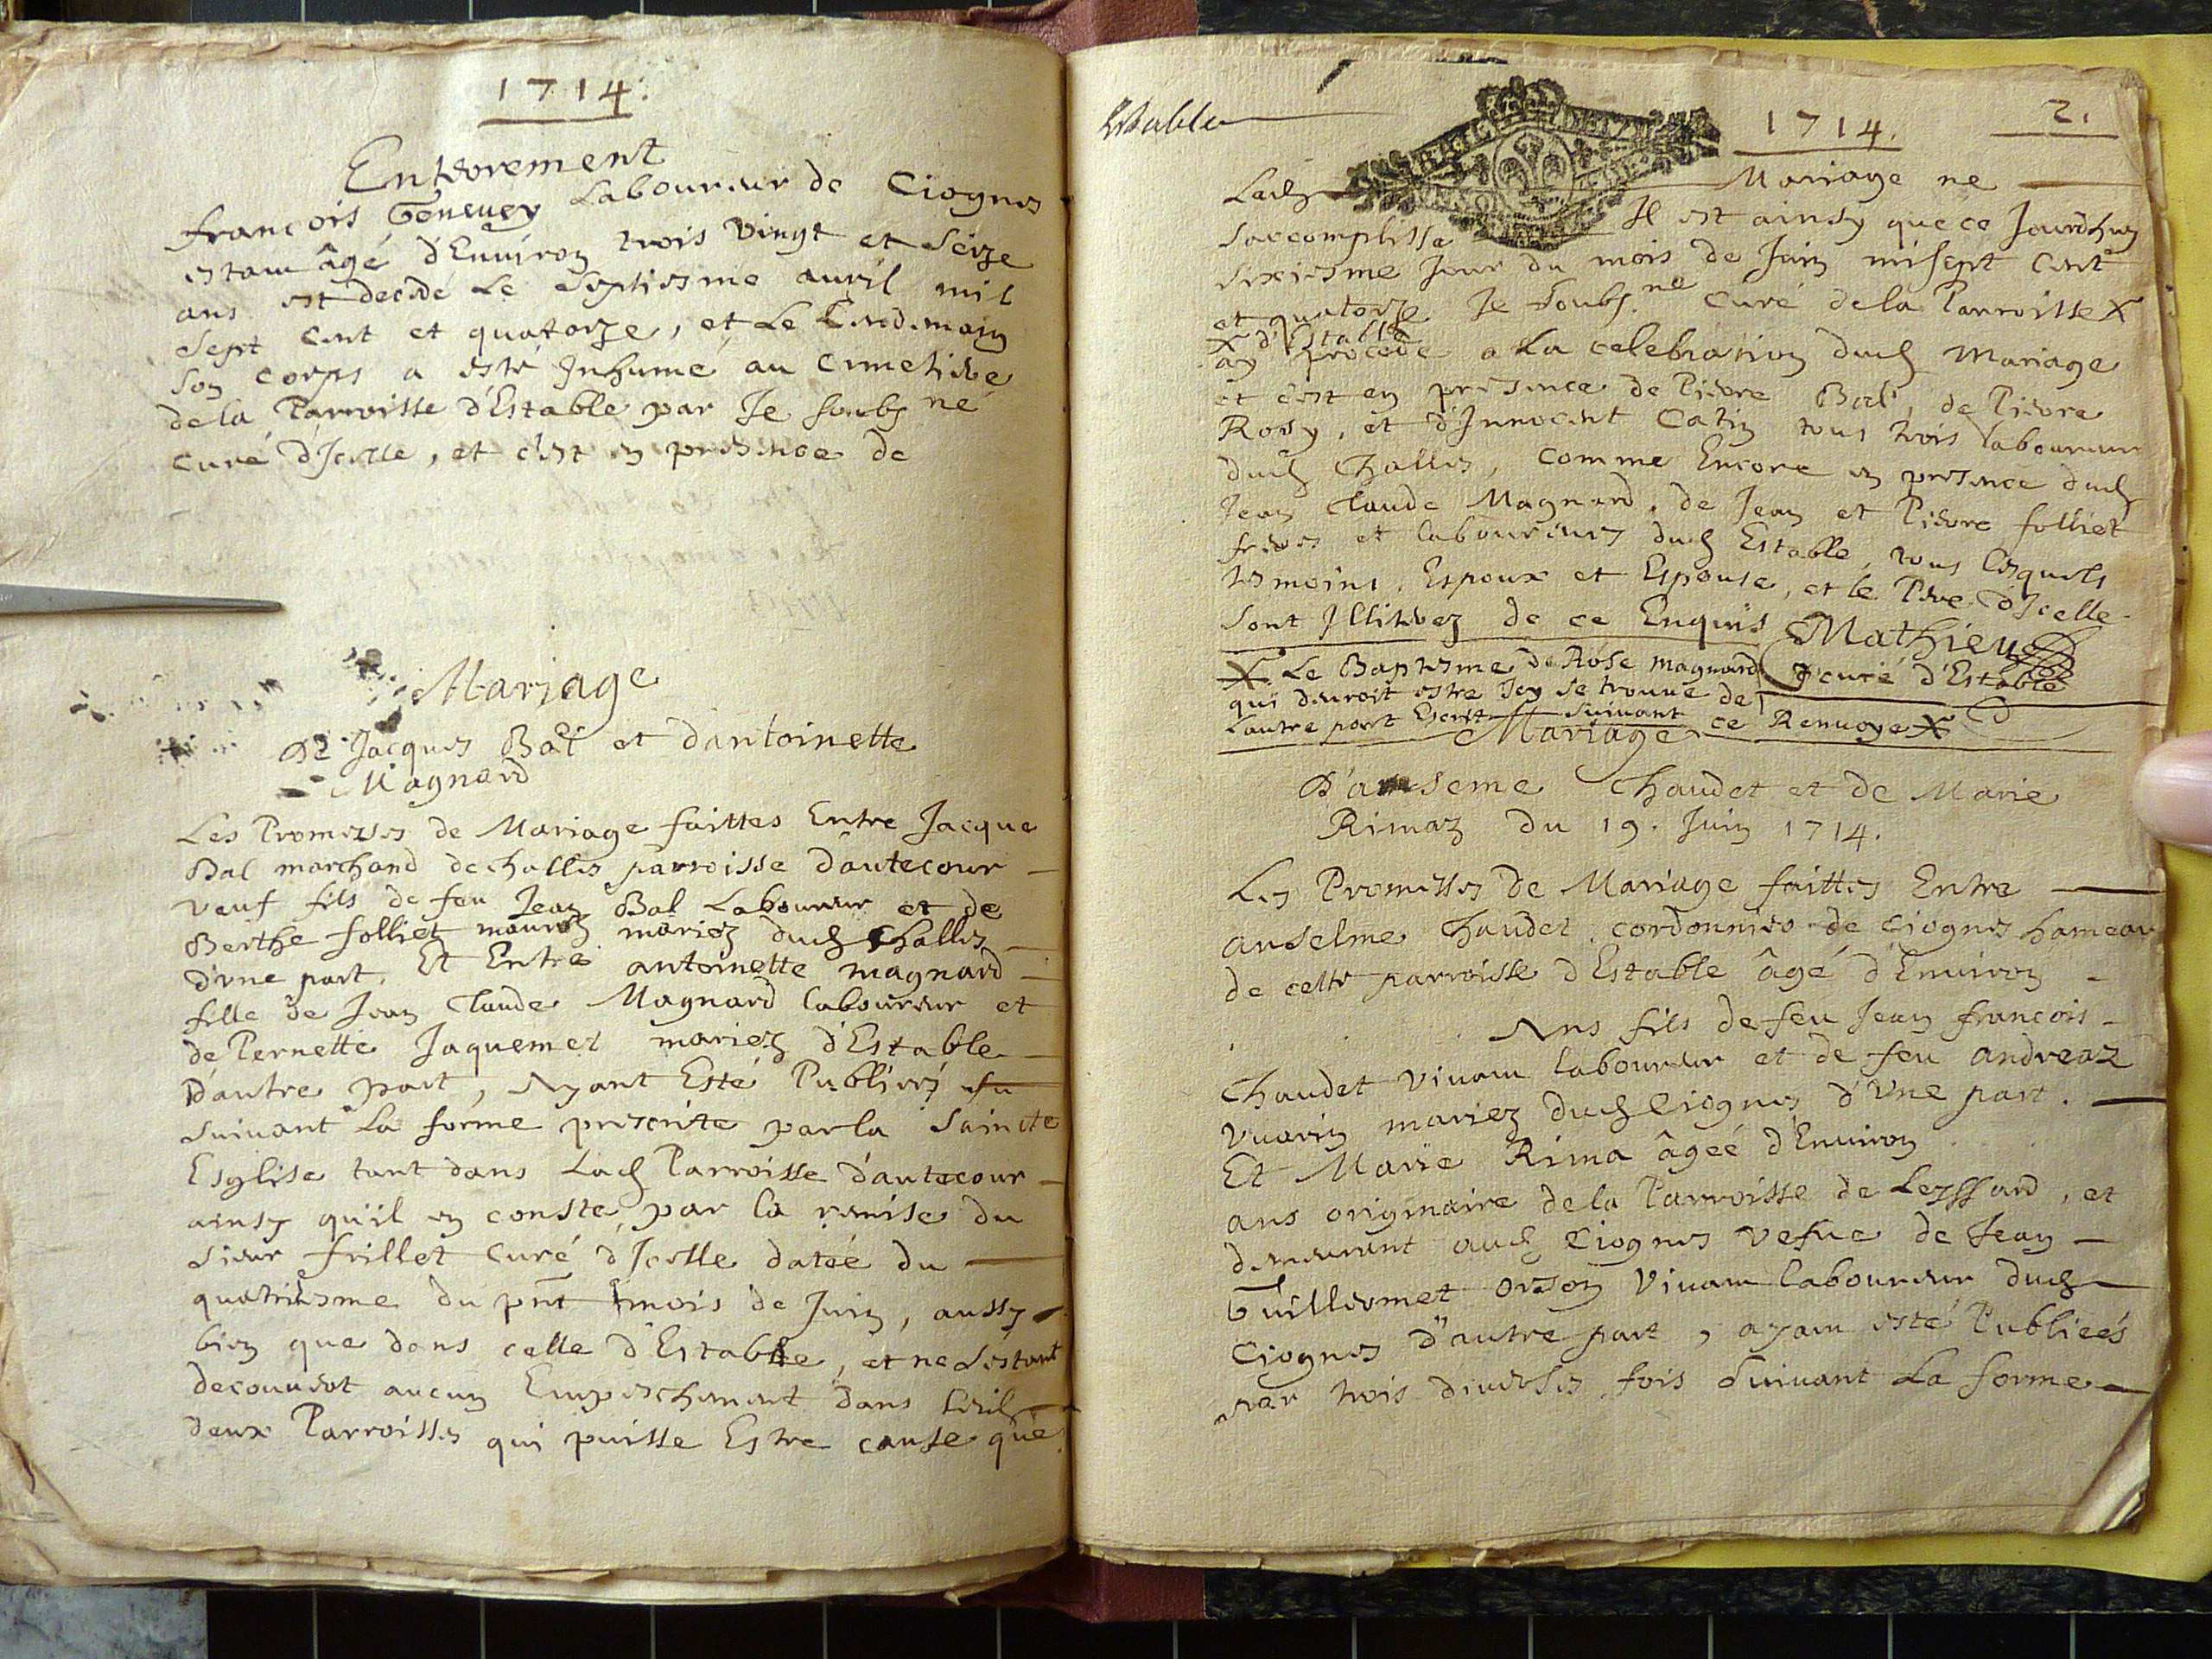 1714.
Enterrement
françois Geneuey Laboureur de Ciognes
estant âgé d'Enuiron trois vingt et seize
ans est decedé Le septiesme auril mil
sept cent et quatorze, et Le Lendemain
son corps a esté Inhumé au cimetiere
de la Parroisse d'Estable par Je soubs né
curé d'Icelle, et c'est en presence de
Mariage
De Jacques Bal et d'antoinette
Magnard
Les Promesses de Mariage faittes Entre Jacque
Bal marchand de challes parroisse d'autecour
veuf fils de feu Jean Bal Laboureur et de
Berthe folliet mariez dud challes
d'vne part, Et Entre antoinette magnard
fille de Jean Claude Magnard laboureur et
de Pernette Jaquemet mariez d'Estable
D'autre part, Ayant Esté Publiees
suiuant la forme prescrite par la saincte
Esglise tant dans Lad Parroisse d'autecour
ainsy qu'il en conste par la remise du
sieur frillet curé d'Icelle datée du
quatriesme du pnt mois de Juin, aussy
bien que dans celle d'Estable, et ne s'estant
decouuert aucun Empeschement dans lesd
deux Parroisses qui puisse Estre cause que
Estable
1714.
2.
Led Mariage ne
s'accomplisse Il est ainsy que ce Jourdhuy
sixiesme Jour du mois de Juin mil sept cent
et quatorze Je soubs.né curé de la Parroisse X
X d'Estable
ay procedé a La celebration dud Mariage
et c'est en presence de Pierre Bal, de Pierre
Rosy, et d'Innocent Catin tous trois laboureurs
dud Challes, comme Encore en presence dud
Jean Claude Magnard, de Jean et Pierre folliet
freres et laboureurs dud Estable, tous lesquels
tesmoins, Espoux et Espouse, et le Pere d'Icelle
sont Illiterez de ce Enquis Mathieu
X Le Baptesme de Rose magnard curé d'Estable
qui deuroit estre Icy se trouue de
Lautre part Escrit suiuant ce Renuoye X
Mariage
D'anseme Chaudet et de Marie
Rimaz du 19. Juin 1714.
Les Promesses de Mariage faittes Entre
anselme Chaudet cordonnier de Ciognes hameau
de cette parroisse d'Estable âgé d'Enuiron
Ans fils de feu Jean francois
Chaudet viuant laboureur et de feu andreaz
vuarin mariez dud Ciognes d'vne part.
Et Marie Rima âgeé d'Enuiron
ans originaire de la Parroisse de Leyssard, et
demeurant aud Ciognes vefue de Jean
Guillermet Orson viuant laboureur dud
Ciognes d'autre part, ayant esté Publieés
par trois diuerses fois suiuant La forme